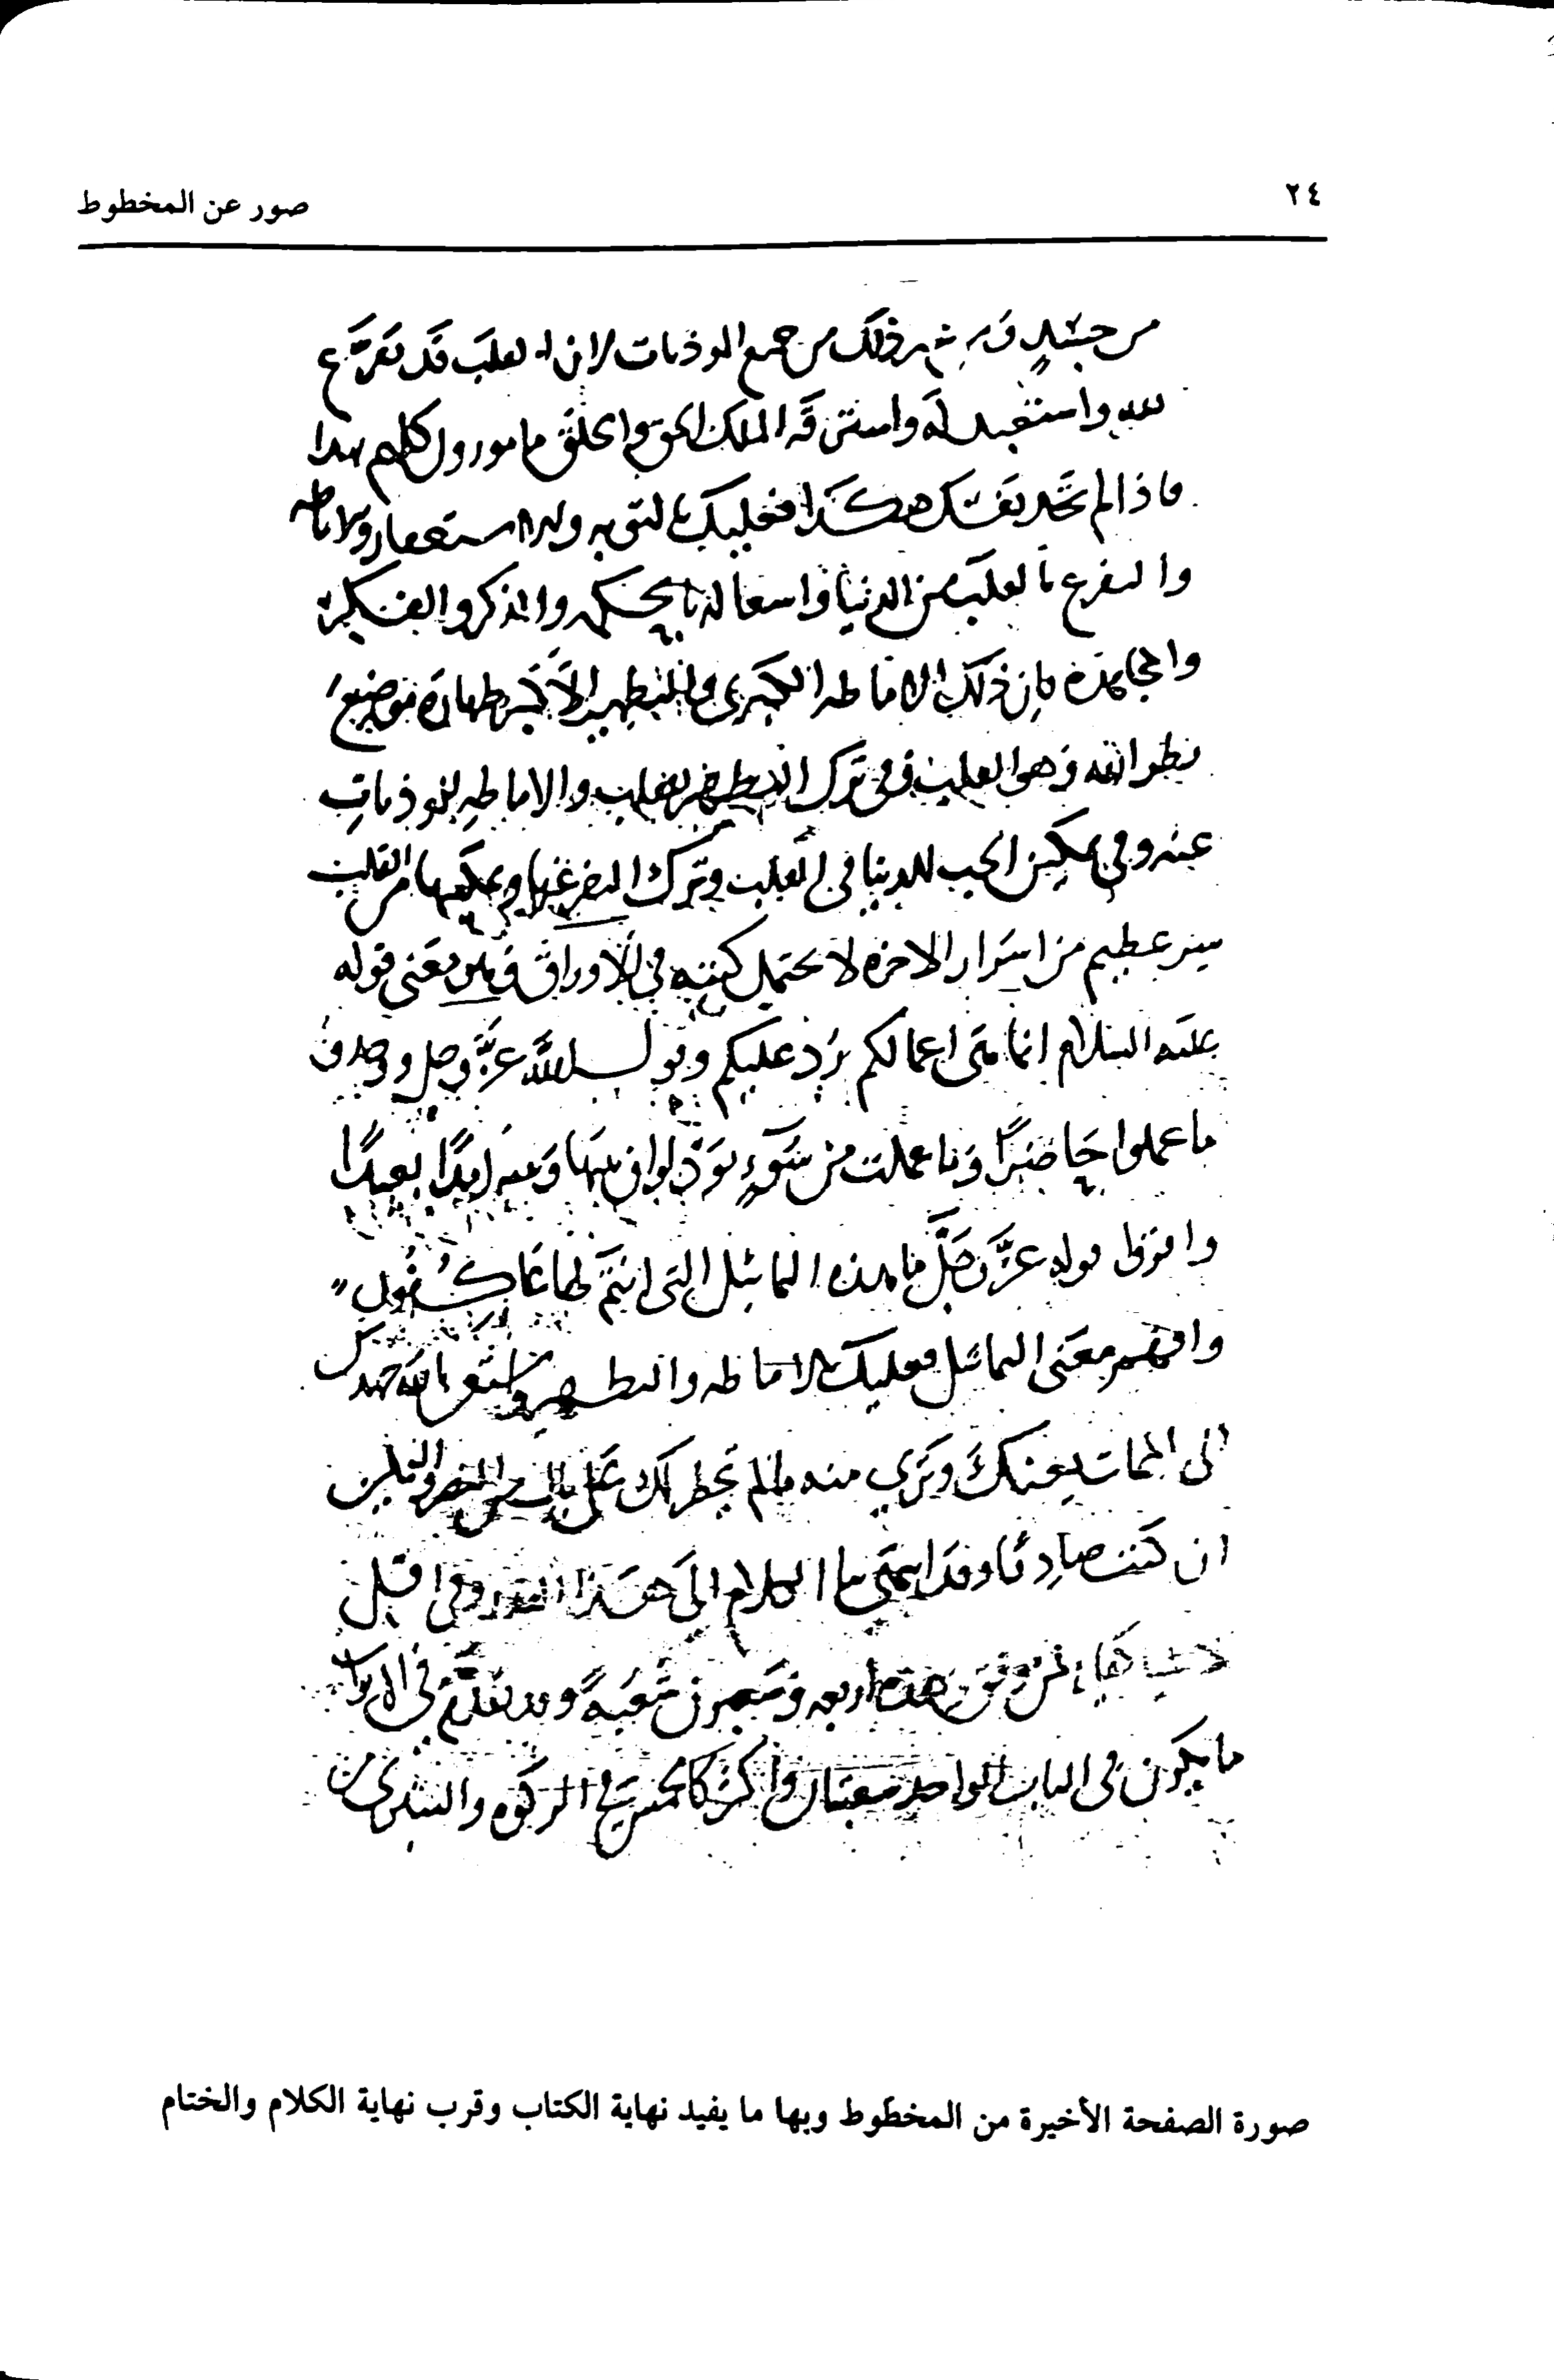 ٢٤
صور عن المخطوط
من جسده وغير ذلك من جميع الموذيات لان القلب قد تفرغ
لله واستعبد له واسترقه الملك الحق والخلق مامورون كلهم بهذا
فاذا لم تجد نفسك هكذا فعليك بالتوبه والاستغفار والاماطه
والتفرع بالقلب من الدنيا واسغاله بالحكمه والذكر والفكره
والمجاهده فان ذلك الاماطه الكبرى والتطهير الأكبر طهارة موضع
نظر الله وهو القلب ففى ترك التطهير للقلب والاماطه للموذيات
عنه وفي تمكين الحب للدنيا فى القلب وترك التفرغ منها من القلب
سر عظيم من اسرار الاخره لا يحتمل كتبه في الاوراق معنى قوله
عليه السلام انما هى اعمالكم ترد عليكم وقول الله عز وجل ووجدوا
ما عملوا حاضرا وما عملت من سوء تود لو ان بينها وبينه امدا بعيدا
واقروا قوله عز وجل ما هذه التماثيل التى انتم لها عاكفون
وافهم معنى التماثيل فعليك بالاماطه والتطهير بالله
الى الممات يعنك وترى منه مالم يخطر لك على بال
ان كنت صادقا وقد انتهى بنا الكلام الى هذا
هذه اربعه وسبعون شعبة وقد تقدم في الابواب
ما يكون فى الباب الواحد شعبتان واكثر كالخمس فى الزكوه
صورة الصفحة الأخيرة من المخطوط وبها ما يفيد نهاية الكتاب وقرب نهاية الكلام والختام